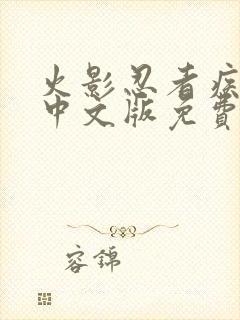 火影忍者疾
中文版免費
容錦